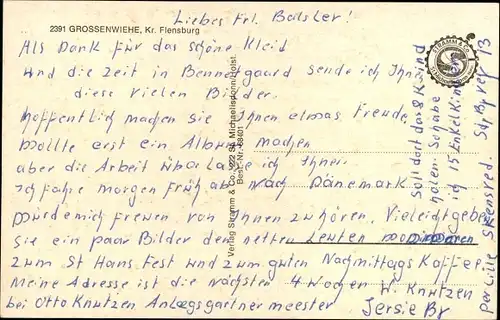 2391 GROSSENWIEHE, Kr. Flensburg
Liebes Frl. Balsler!
Als Dank für das schöne Kleid
und die Zeit in Bennetgaard sende ich Ihn
diese vielen Bilder.
hoffentlich machen sie Ihnen etwas Freude
wollte erst ein Album machen
aber die Arbeit überlasse ich Ihnen
ich fahre morgen früh ab nach Dänemark
würde mich freuen von Ihnen zu hören. Vieleicht geben
Sie ein paar Bilder den netten Leuten
zum St Hans Fest und zum guten Nachmittags Kaffee
Meine Adresse ist die nächsten 4 Wochen W. Knutzen
bei Otto Knutzen Anlægsgartnermeester Jersie By
per Lille Skensved. Str Byvej 73
Soll dort das 8 Kind
holen. Schabe
ich 15 Enkel Kinder
STRAMM & CO.
Verlag Stramm & Co. 222 St. Michaelisdonn/Holst.
Best.-Nr. 68401